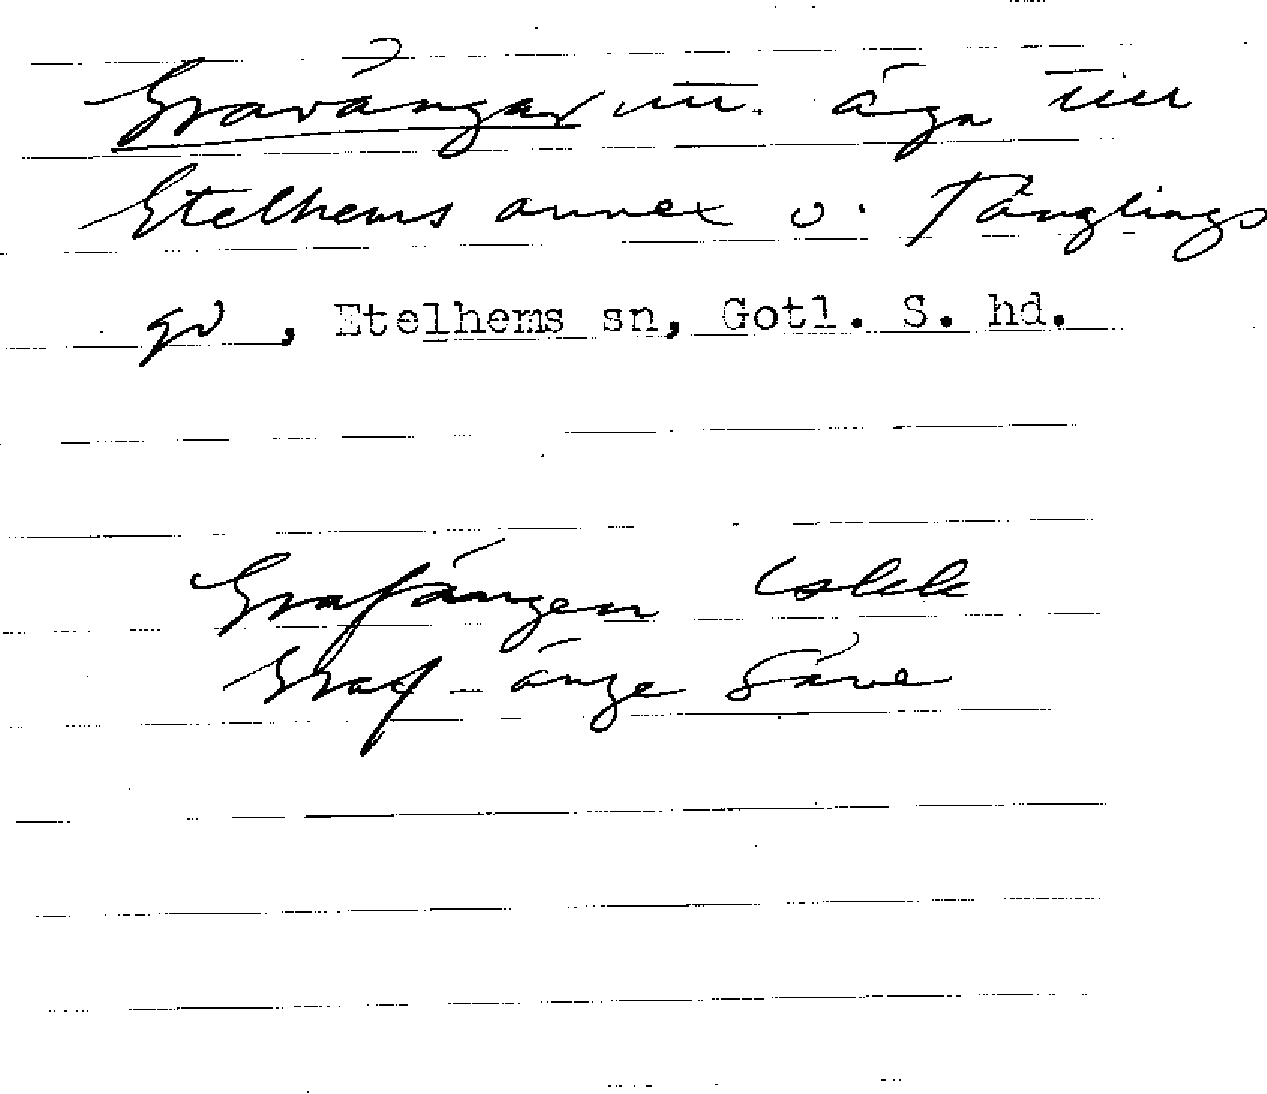 Gravängar m. m. äga till
Etelhems annex o. Tänglings
gd, Etelhems sn, Gotl. S. hd.
Grafängen
Graf-änge Säve